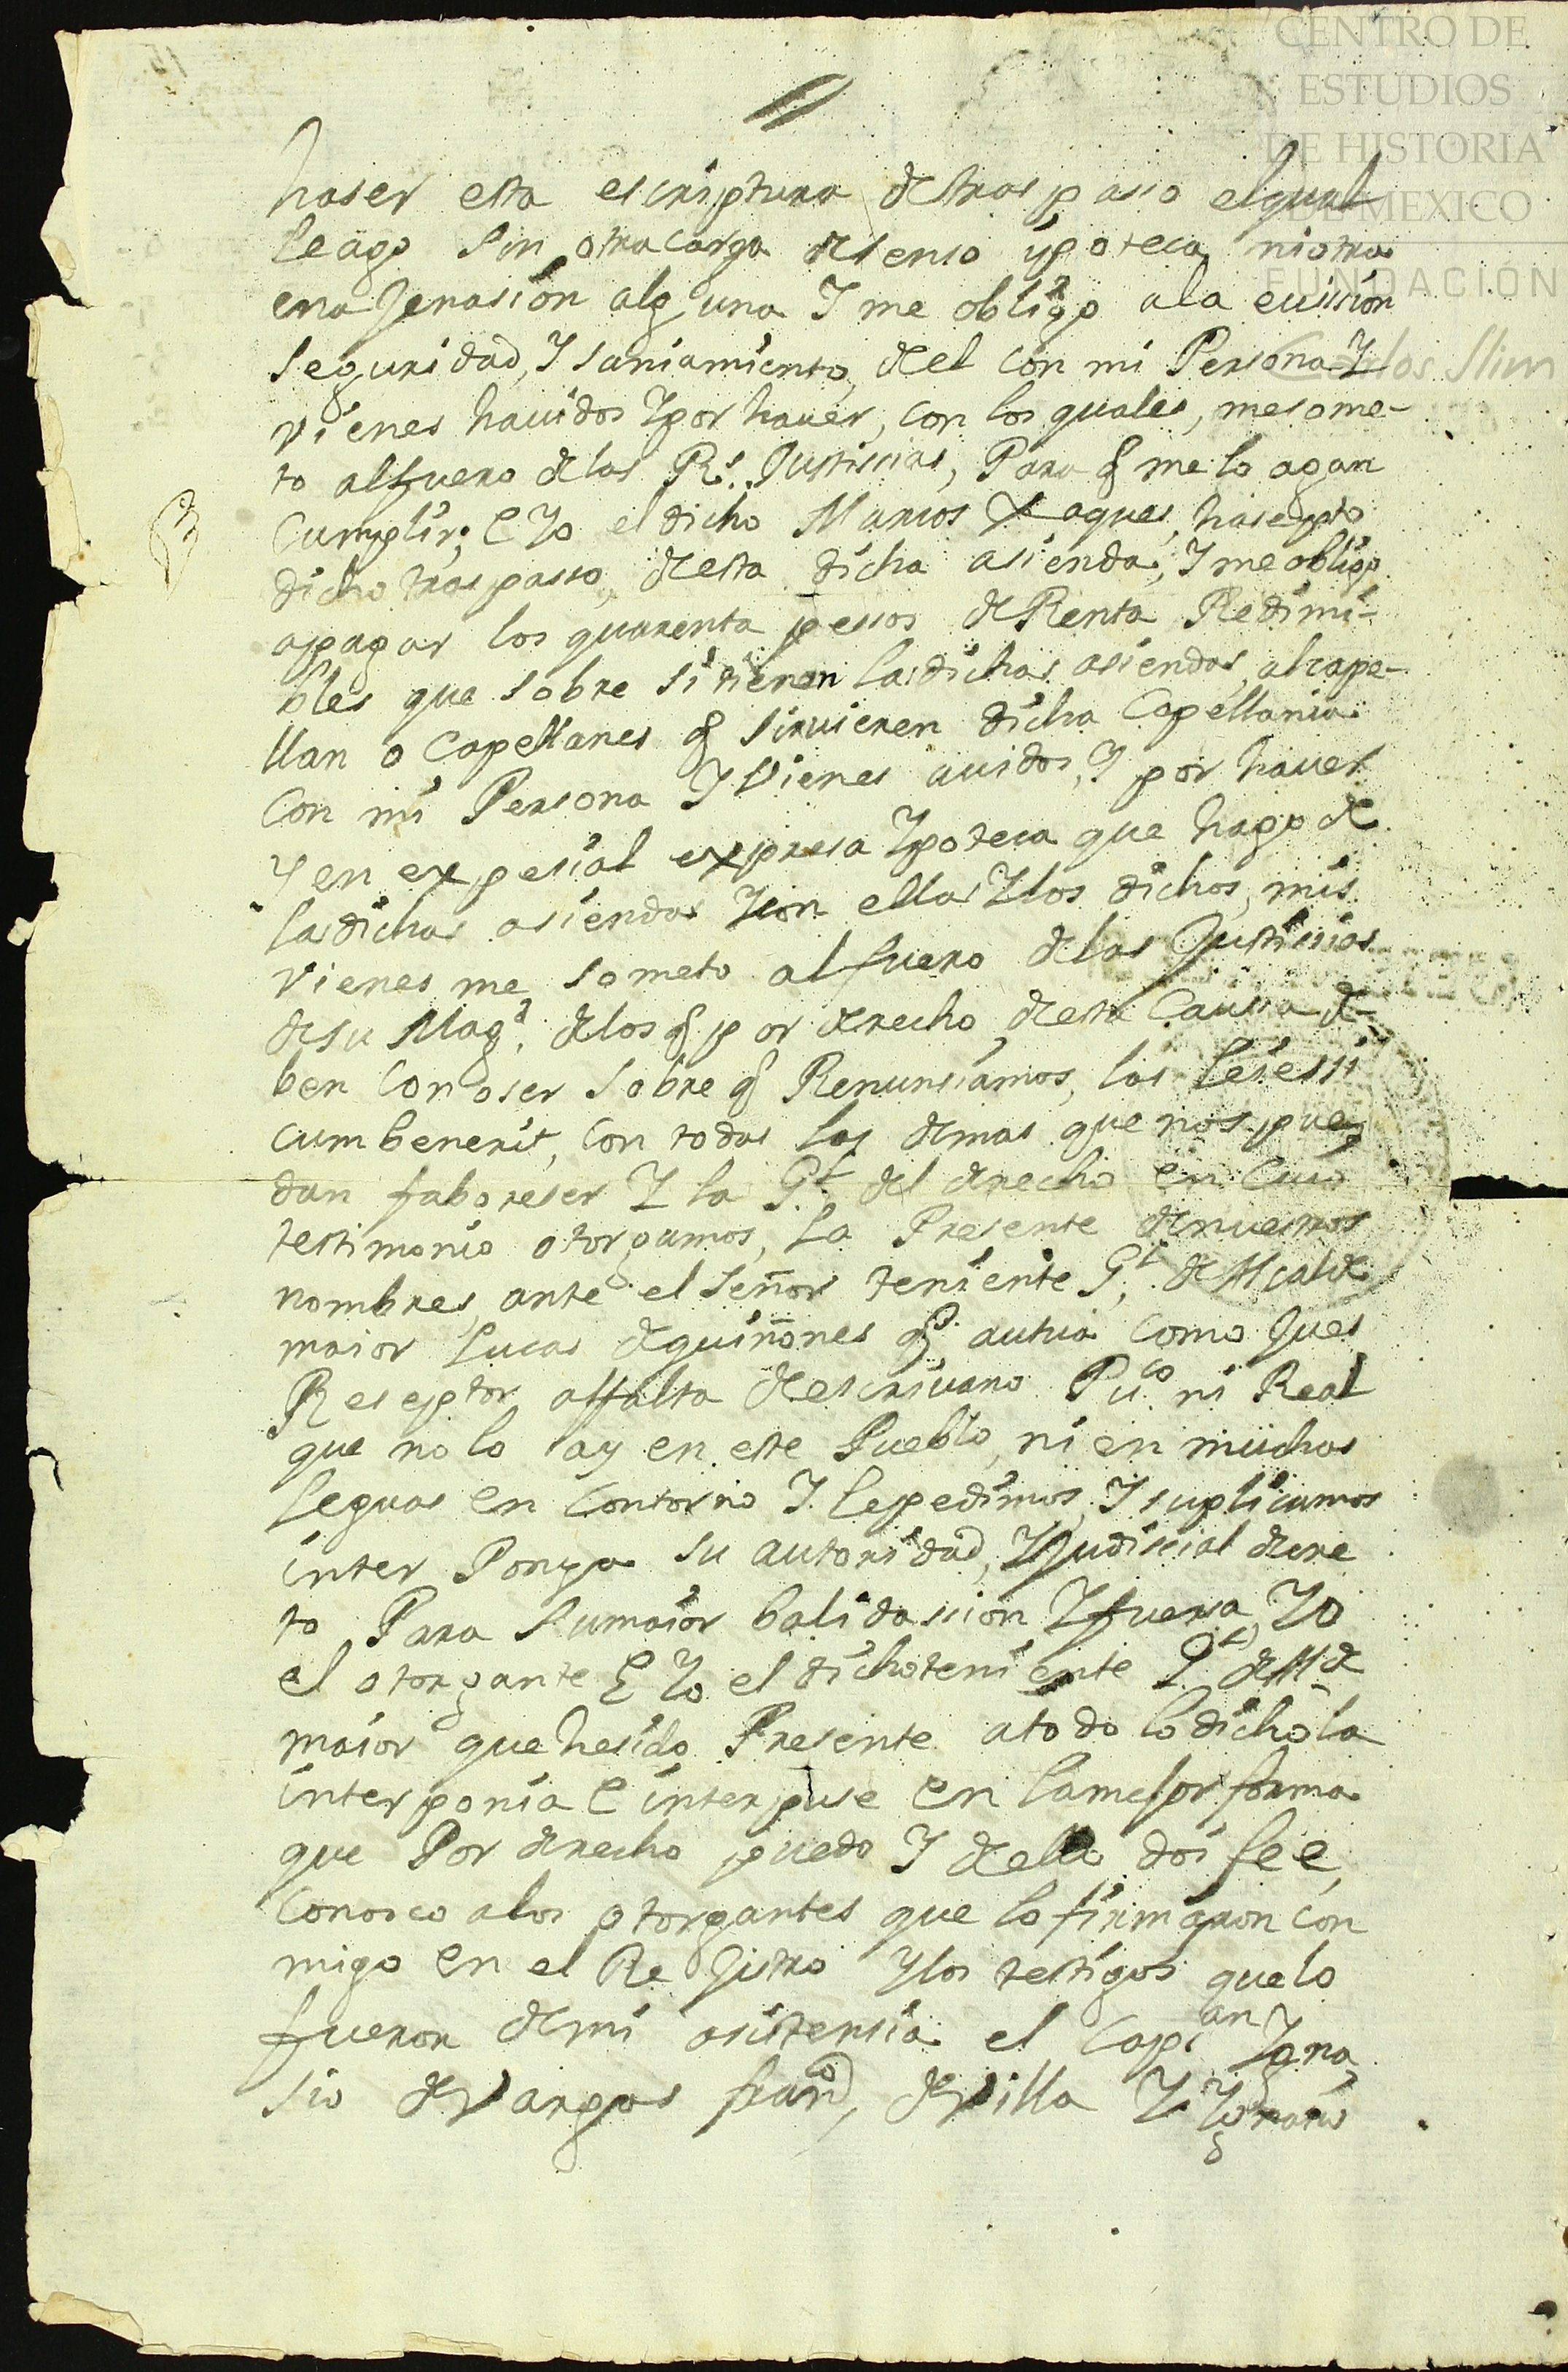 CENTRO DE
ESTUDIOS
DE HISTORIA
DE MEXICO
FUNDACIÓN
Carlos Slim
haser esta escriptura de traspaso el qual
le ago sin otra carga de senso ypoteca ni otra
enagenasion alguna Y me obligo a la euicion
seguridad, Y saniamiento, del con mi Persona Y
vienes hauidos Y por hauer, con los quales, me some-
to al fuero de las Rs. Justissias, Para q me lo agan
cumplir; E Yo el dicho Marcos Xaques, hasepto
dicho traspasso, de esta dicha asienda, Y me obligo
apagar los quarenta pessos de Renta Redimi-
bles que sobre si tienen las dichas asiendas, al cape-
llan o Capellanes q siruieren dicha Capellania
Con mi Persona Y Vienes auidos, Y por hauer
Y en expesial expresa Ypoteca que hago de
las dichas asiendas Y con ellas Y los dichos, mis
vienes me someto al fuero de las Justissias
de su Magd. de los q por derecho, de esta Caussa de-
ben Conoser sobre q Renunsiamos, las leies si
cumbenerit, con todas las demas que nos pue-
dan faboreser Y la Gl. del derecho en Cuio
testimonio otorgamos, la Presente de nuestros
nombres, ante el señor teniente Gl. de Alcalde
maior Lucas de quiñones q autua como Jues
Reseptor, affalta de escriuano Puco. ni Real
que no lo ay en este Pueblo, ni en muchas
leguas en Contorno Y le pedimos, Y suplicamos
inter Ponga su autoridad, Y Judissial decre
to Para su maior balidassion Y fuersa, Yo
el otorgante E Yo el dicho teniente Gl. de Alde
maior que he sido Presente a todo lo dicho la
interponia E interpuse en la mejor forma
que Por derecho puedo Y de ello doi fee,
Conosco a los otorgantes que lo firmaron con
migo en el Rejistro Y los testigos que lo
fueron de mi asistensia el Capian Ygna
sio de Vargas franco, de Villa Y Ygnasio